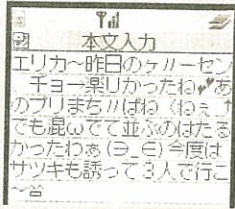 本文入力
エリカ〜昨日のゲーセン
チョー楽しかったね あ
のプリまち〃ばね
ても混ωでて並ぶのはたる
かったわぁ(∋_∈)今度は
サツキも誘って3人で行こ
〜